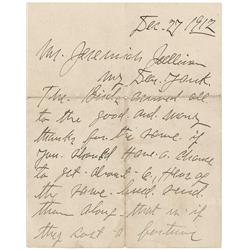 Dec. 27 1912
Mr. Jeremiah Sullivan
My Dear
The Birds arrived all
to the good and many
thanks for the same if
you should have a chance
to get about 6
the same kind send
them along that is if
they cost a fortune